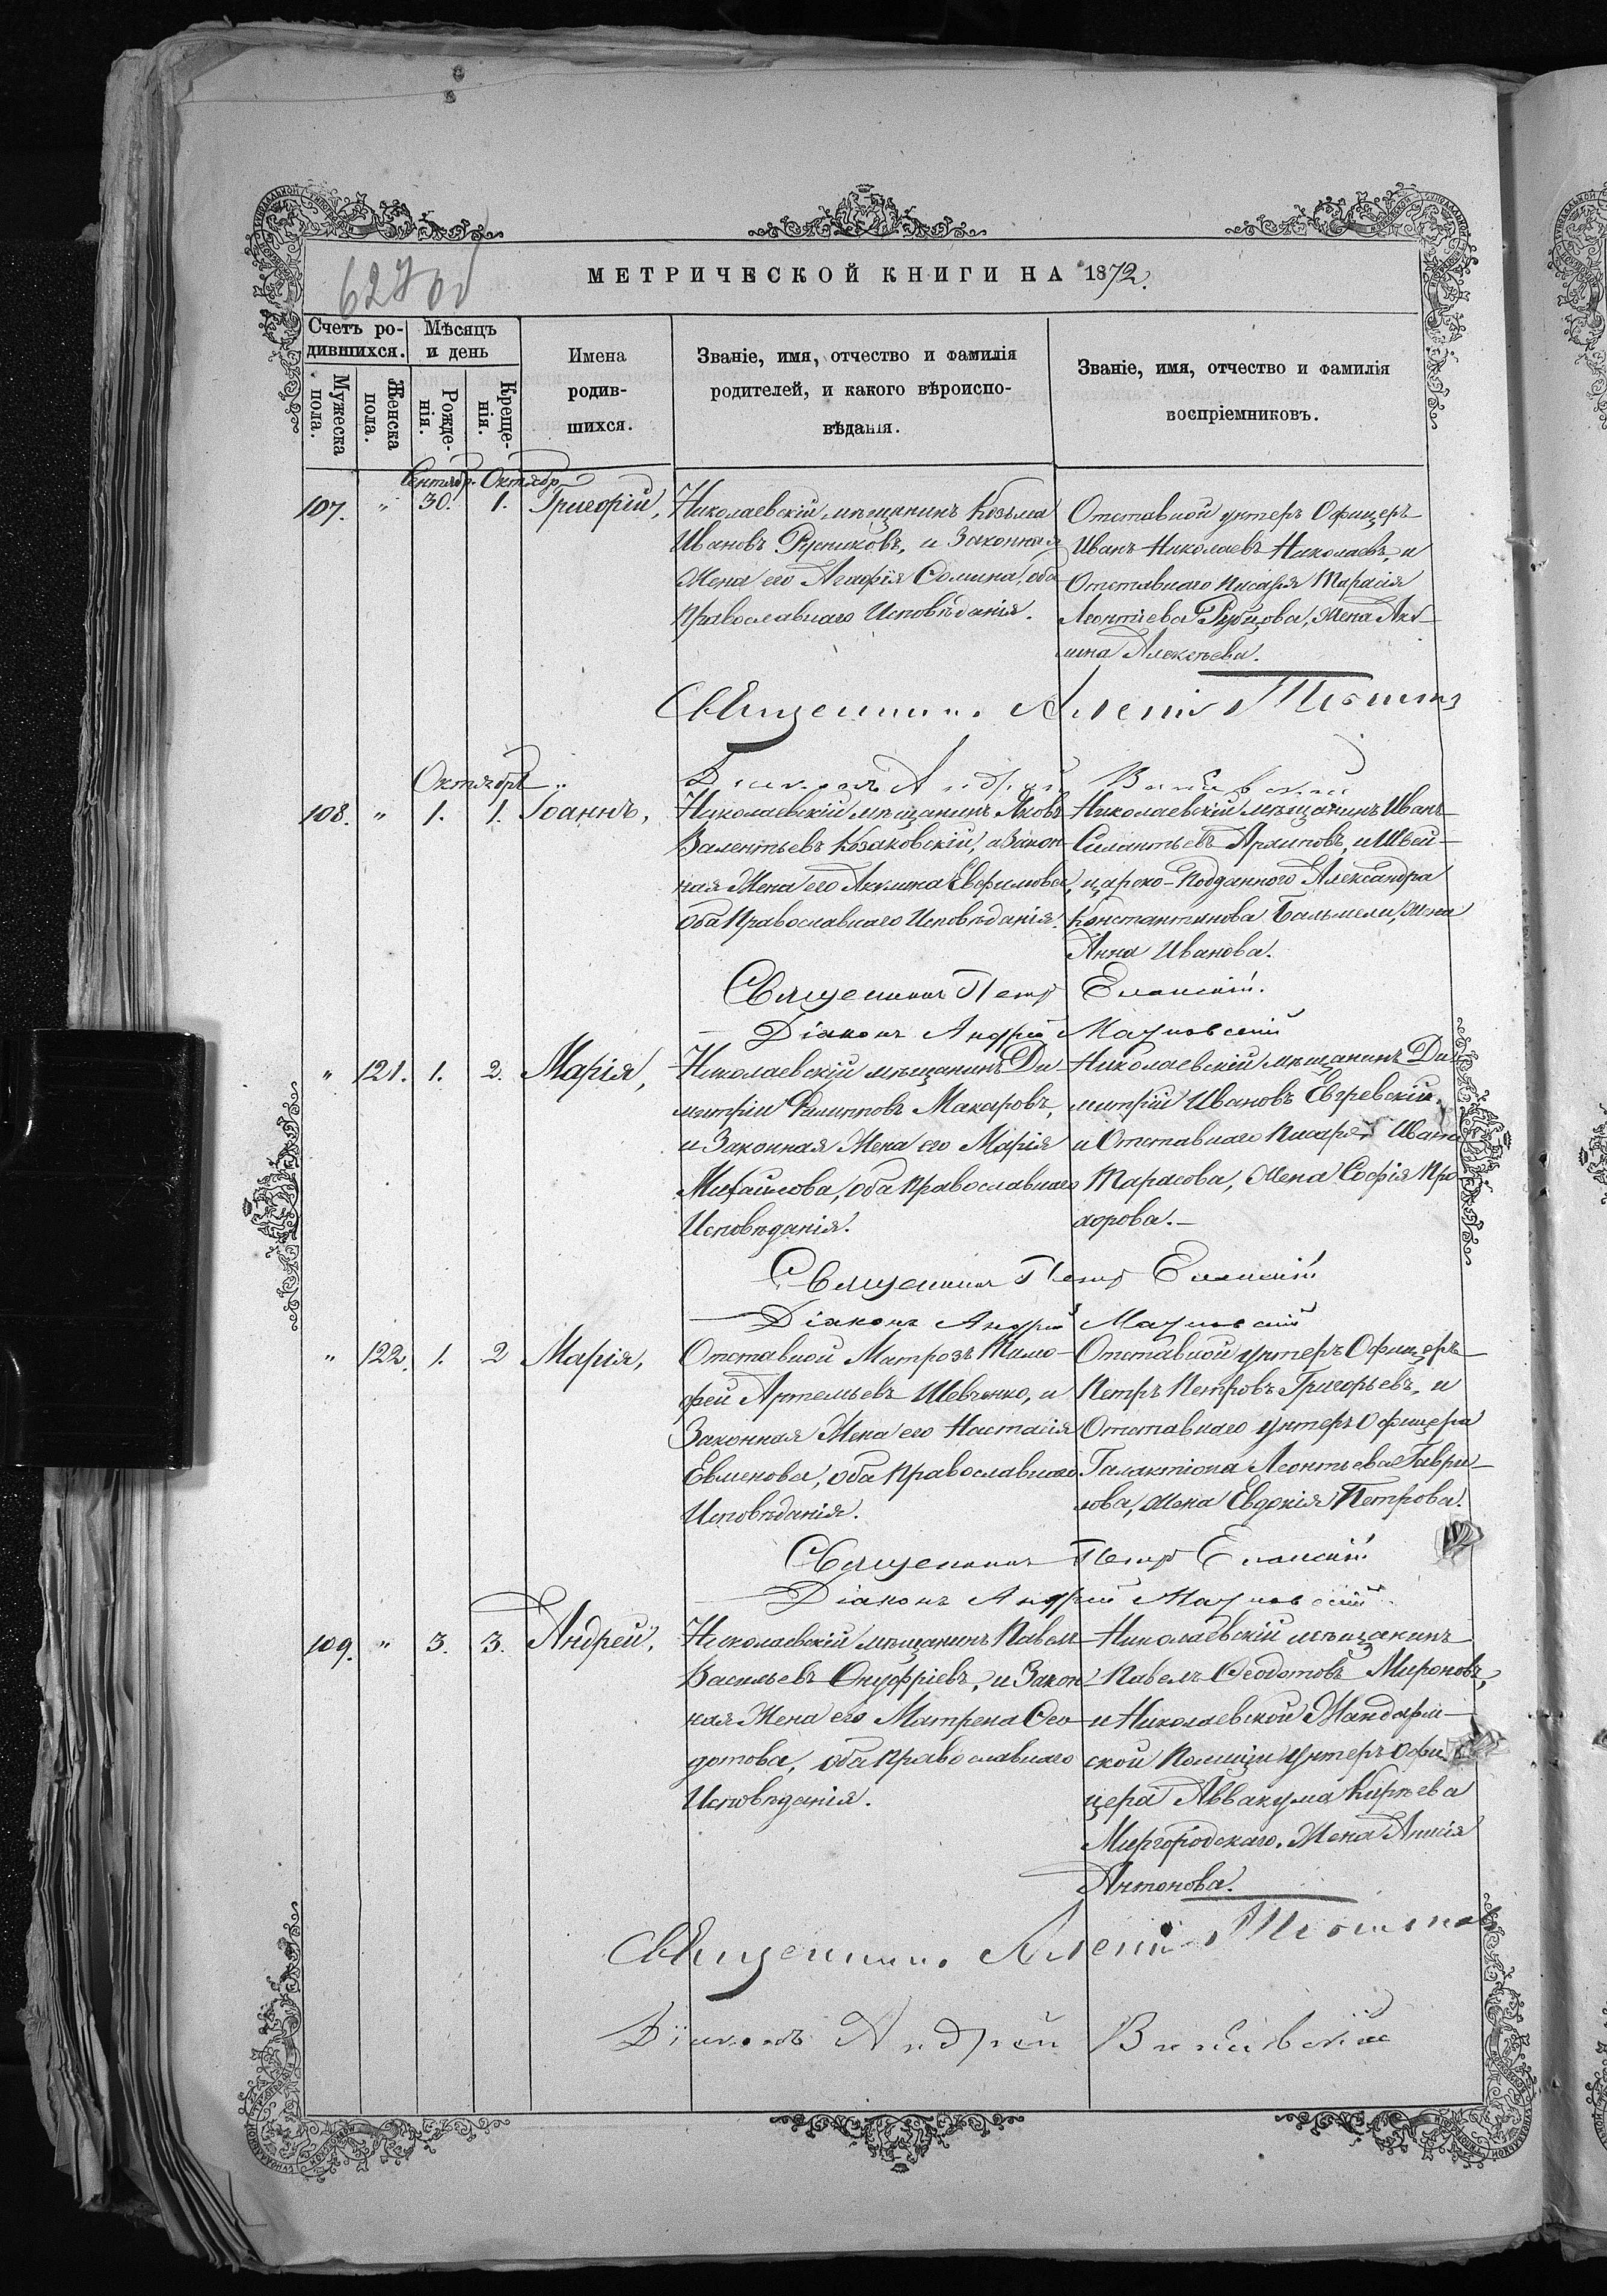 627 об
МЕТРИЧЕСКОЙ КНИГИ НА 1872.
Счетъ родившихся.
Мужеска пола.
Женска пола.
Мѣсяцъ и день
Рожденія.
Крещенія.
Имена родившихся.
Званіе, имя, отчество и фамилія родителей, и какого вѣроисповѣданія.
Званіе, имя, отчество и фамилія воспріемниковъ.
Сентябр. Октябр.
107. " 30. 1. Григорій,
Николаевскій мѣщанинъ Козьма
Ивановъ и Законная
Жена его Агафія Сомина, оба
Православнаго Исповѣданія.
Отставной унтеръ Офицеръ
Иванъ Николаевъ Николаевъ, и
Отставнаго писаря Тарасія
Леонтіева Рубцова, Жена
Алексѣева.
Священникъ Алексій
Діаконъ Андрей
Октябрь
108. " 1. 1. Іоаннъ,
Николаевскій мѣщанинъ Яковъ
Валентьевъ Козаковскій, и Закон-
ная Жена его Акилина Евфимова,
оба Православнаго Исповѣданія.
Николаевскій мѣщанинъ Иванъ
Силантьевъ Архиповъ, и Швей-
царско-Подданного Александра
Константинова Бальмели, жена
Анна Иванова.
Священникъ Петръ Еланскій.
Діаконъ Андрей
" 121. 1. 2. Марія,
Николаевскій мѣщанинъ Ди-
митрій Филипповъ Макаровъ,
и Законная Жена его Марія
Михайлова, оба Православнаго
Исповѣданія.
Николаевскій мѣщанинъ Ди-
митрій Ивановъ Евгревскій,
и Отставнаго Писаря Ивана
Тарасова, Жена Софія Про-
хорова.
Священникъ Петръ Еланскій
Діаконъ Андрей
" 122. 1. 2 Марія,
Отставной Матрозъ Тимо-
фей Артемьевъ Шевченко, и
Законная Жена его Настасія
Евменова, оба Православнаго
Исповѣданія.
Отставной унтеръ Офицеръ
Петръ Петровъ Григорьевъ, и
Отставнаго унтеръ Офицера
Галактіона Леонтьева Гаври-
лова, Жена Евдокія Петрова.
Священникъ Петръ Еланскій
Діаконъ Андрей
109. " 3. 3. Андрей,
Николаевскій мѣщанинъ Павелъ
Васильевъ Онуфріевъ, и Закон-
ная Жена его Матрена Ѳео-
дотова, оба Православнаго
Исповѣданія.
Николаевскій мѣщанинъ
Павелъ Ѳеодотовъ Мироновъ,
и Николаевской Жандарм-
ской Полиціи Унтеръ Офи-
цера Аввакума Кирѣева
Миргородскаго, Жена Аннія
Антонова.
Священникъ Алексій
Діаконъ Андрей